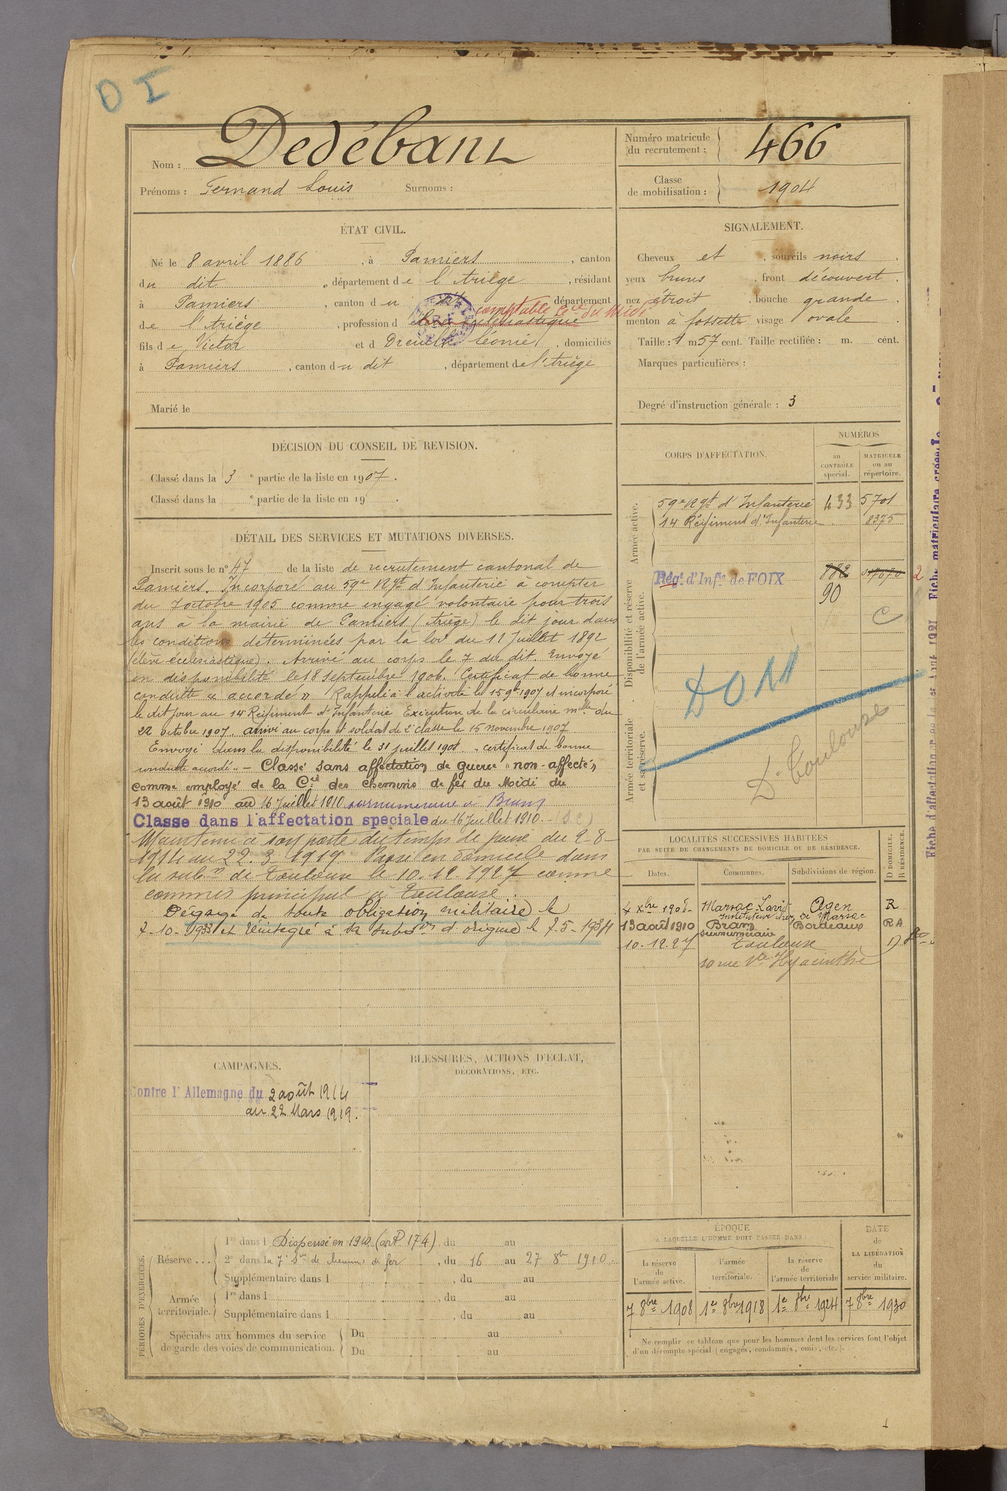 D I
Nom : Dedébant
Prénoms : Fernand Louis Surnoms :
Numéro matricule du recrutement : 466
Classe de mobilisation : 1904
ÉTAT CIVIL.
Né le 8 avril 1886, à Pamiers, canton
du dit, département de l'Ariège, résidant
à Pamiers, canton du dit, département
de l'Ariège, profession d élève ecclésiastique comptable Cie du Midi
fils de Victor et d Dreuilhe Léonie, domiciliés
à Pamiers, canton du dit, département de l'Ariège
Marié le
SIGNALEMENT.
Cheveux et sourcils noirs
yeux bruns, front découvert
nez étroit, bouche grande
menton à fossette visage ovale
Taille : 1 m 57 cent. Taille rectifiée : m. cent.
Marques particulières :
Degré d'instruction générale : 3
DÉCISION DU CONSEIL DE REVISION.
Classé dans la 3e partie de la liste en 1907.
Classé dans la e partie de la liste en 19 .
DÉTAIL DES SERVICES ET MUTATIONS DIVERSES.
Inscrit sous le n° 47 de la liste de recrutement cantonal de
Pamiers. Incorporé au 59e Régt d'Infanterie à compter
du 7 octobre 1905 comme engagé volontaire pour trois
ans à la mairie de Pamiers (Ariège) le dit jour dans
les conditions déterminées par la loi du 11 Juillet 1892
(élève ecclésiastique). Arrivé au corps le 7 du dit. Envoyé
en disponibilité le 18 septembre 1906. Certificat de bonne
conduite "accordé". Rappelé à l'activité le 15 9bre 1907 et incorporé
le dit jour au 14 Régiment d'Infanterie Exécution de la circulaire mlle du
22 octobre 1907. arrivé au corps et soldat de 2e classe le 15 novembre 1907
Envoyé dans la disponibilité le 31 juillet 1908. certificat de bonne
conduite accordé. - Classé sans affectation de guerre "non-affecté"
comme employé de la Cie des chemins de fer du Midi du
13 août 1910 au 16 Juillet 1910 surnuméraire à Bram
Classé dans l'affectation spéciale du 16 Juillet 1910. (SC)
Maintenu à son poste du temps de paix du 2-8-
1914 au 22-3-1919. Passé en domicile dans
la subon de Toulouse le 10.12.1927 comme
commis principal à Toulouse.
Dégagé de toute obligation militaire le
7-10-1933 et réintégré à sa subon d'origine le 7-5-1934
CORPS D'AFFECTATION.
NUMÉROS
au CONTRÔLE spécial.
MATRICULE ou au répertoire.
Armée active.
59e Régt d'Infanterie 433 5701
14 Régiment d'Infanterie 8375
Disponibilité et réserve de l'armée active.
Régt d'Infie de FOIX 182
90
C
Armée territoriale et sa réserve.
Dn Toulouse
LOCALITÉS SUCCESSIVES HABITÉES
PAR SUITE DE CHANGEMENTS DE DOMICILE OU DE RÉSIDENCE.
Dates. Communes. Subdivisions de région. D DOMICILE. R RÉSIDENCE.
4 Xbre 1908 Marsac Lavit Agen R
13 août 1910 Bram Bordeaux RA
surnuméraire
10.12.27 Toulouse D
10 rue Ste Hyacinthe
CAMPAGNES.
Contre l'Allemagne du 2 août 1914
au 22 Mars 1919.
BLESSURES, ACTIONS D'ÉCLAT,
DÉCORATIONS, ETC.
PÉRIODES D'EXERCICES.
Réserve ... 1re dans l Dispensé en 1910 (art 174). du au
2e dans la 7e Son de chemins de fer, du 16 au 27 8bre 1910.
Supplémentaire dans l , du au
Armée territoriale. 1re dans l , du au
Supplémentaire dans l , du au
Spéciales aux hommes du service de garde des voies de communication. Du au
Du au
ÉPOQUE
A LAQUELLE L'HOMME DOIT PASSER DANS :
la réserve de l'armée active. l'armée territoriale. la réserve de l'armée territoriale
DATE de LA LIBÉRATION du service militaire.
7 8bre 1908 1er 8bre 1918 1er 8bre 1924 7 8bre 1930
Ne remplir ce tableau que pour les hommes dont les services font l'objet
d'un décompte spécial (engagés, condamnés, omis, etc.).